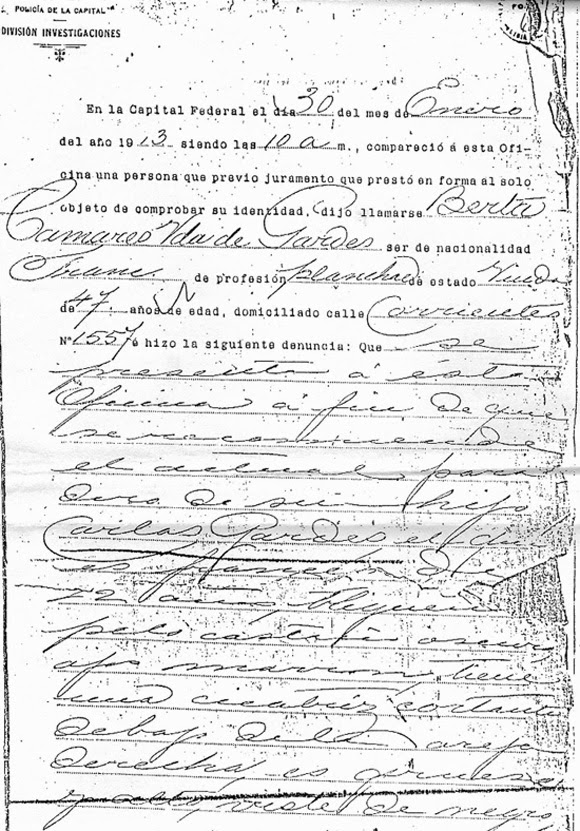 POLICÍA DE LA CAPITAL
DIVISIÓN INVESTIGACIONES
En la Capital Federal el día 30 del mes de Enero
del año 1913 siendo las 10 a m., compareció á esta Ofi-
cina una persona que previo juramento que prestó en forma al solo
objeto de comprobar su identidad, dijo llamarse Berta
Camares Vda de Gardes ser de nacionalidad
Franc de profesión planchad de estado Viuda
de 47 años de edad, domiciliado calle Corrientes
Nº 1557 é hizo la siguiente denuncia: Que se
presenta á ésta
Oficina á fin de que
se recomiende
el actual para
dero de su hijo
Carlos Gardes el cual
es francés, de
22 años,
pelo castaño oscuro,
ojos marron, tiene
una cicatriz cortante
debajo de la oreja
derecha, es grueso
y alto, viste de negro